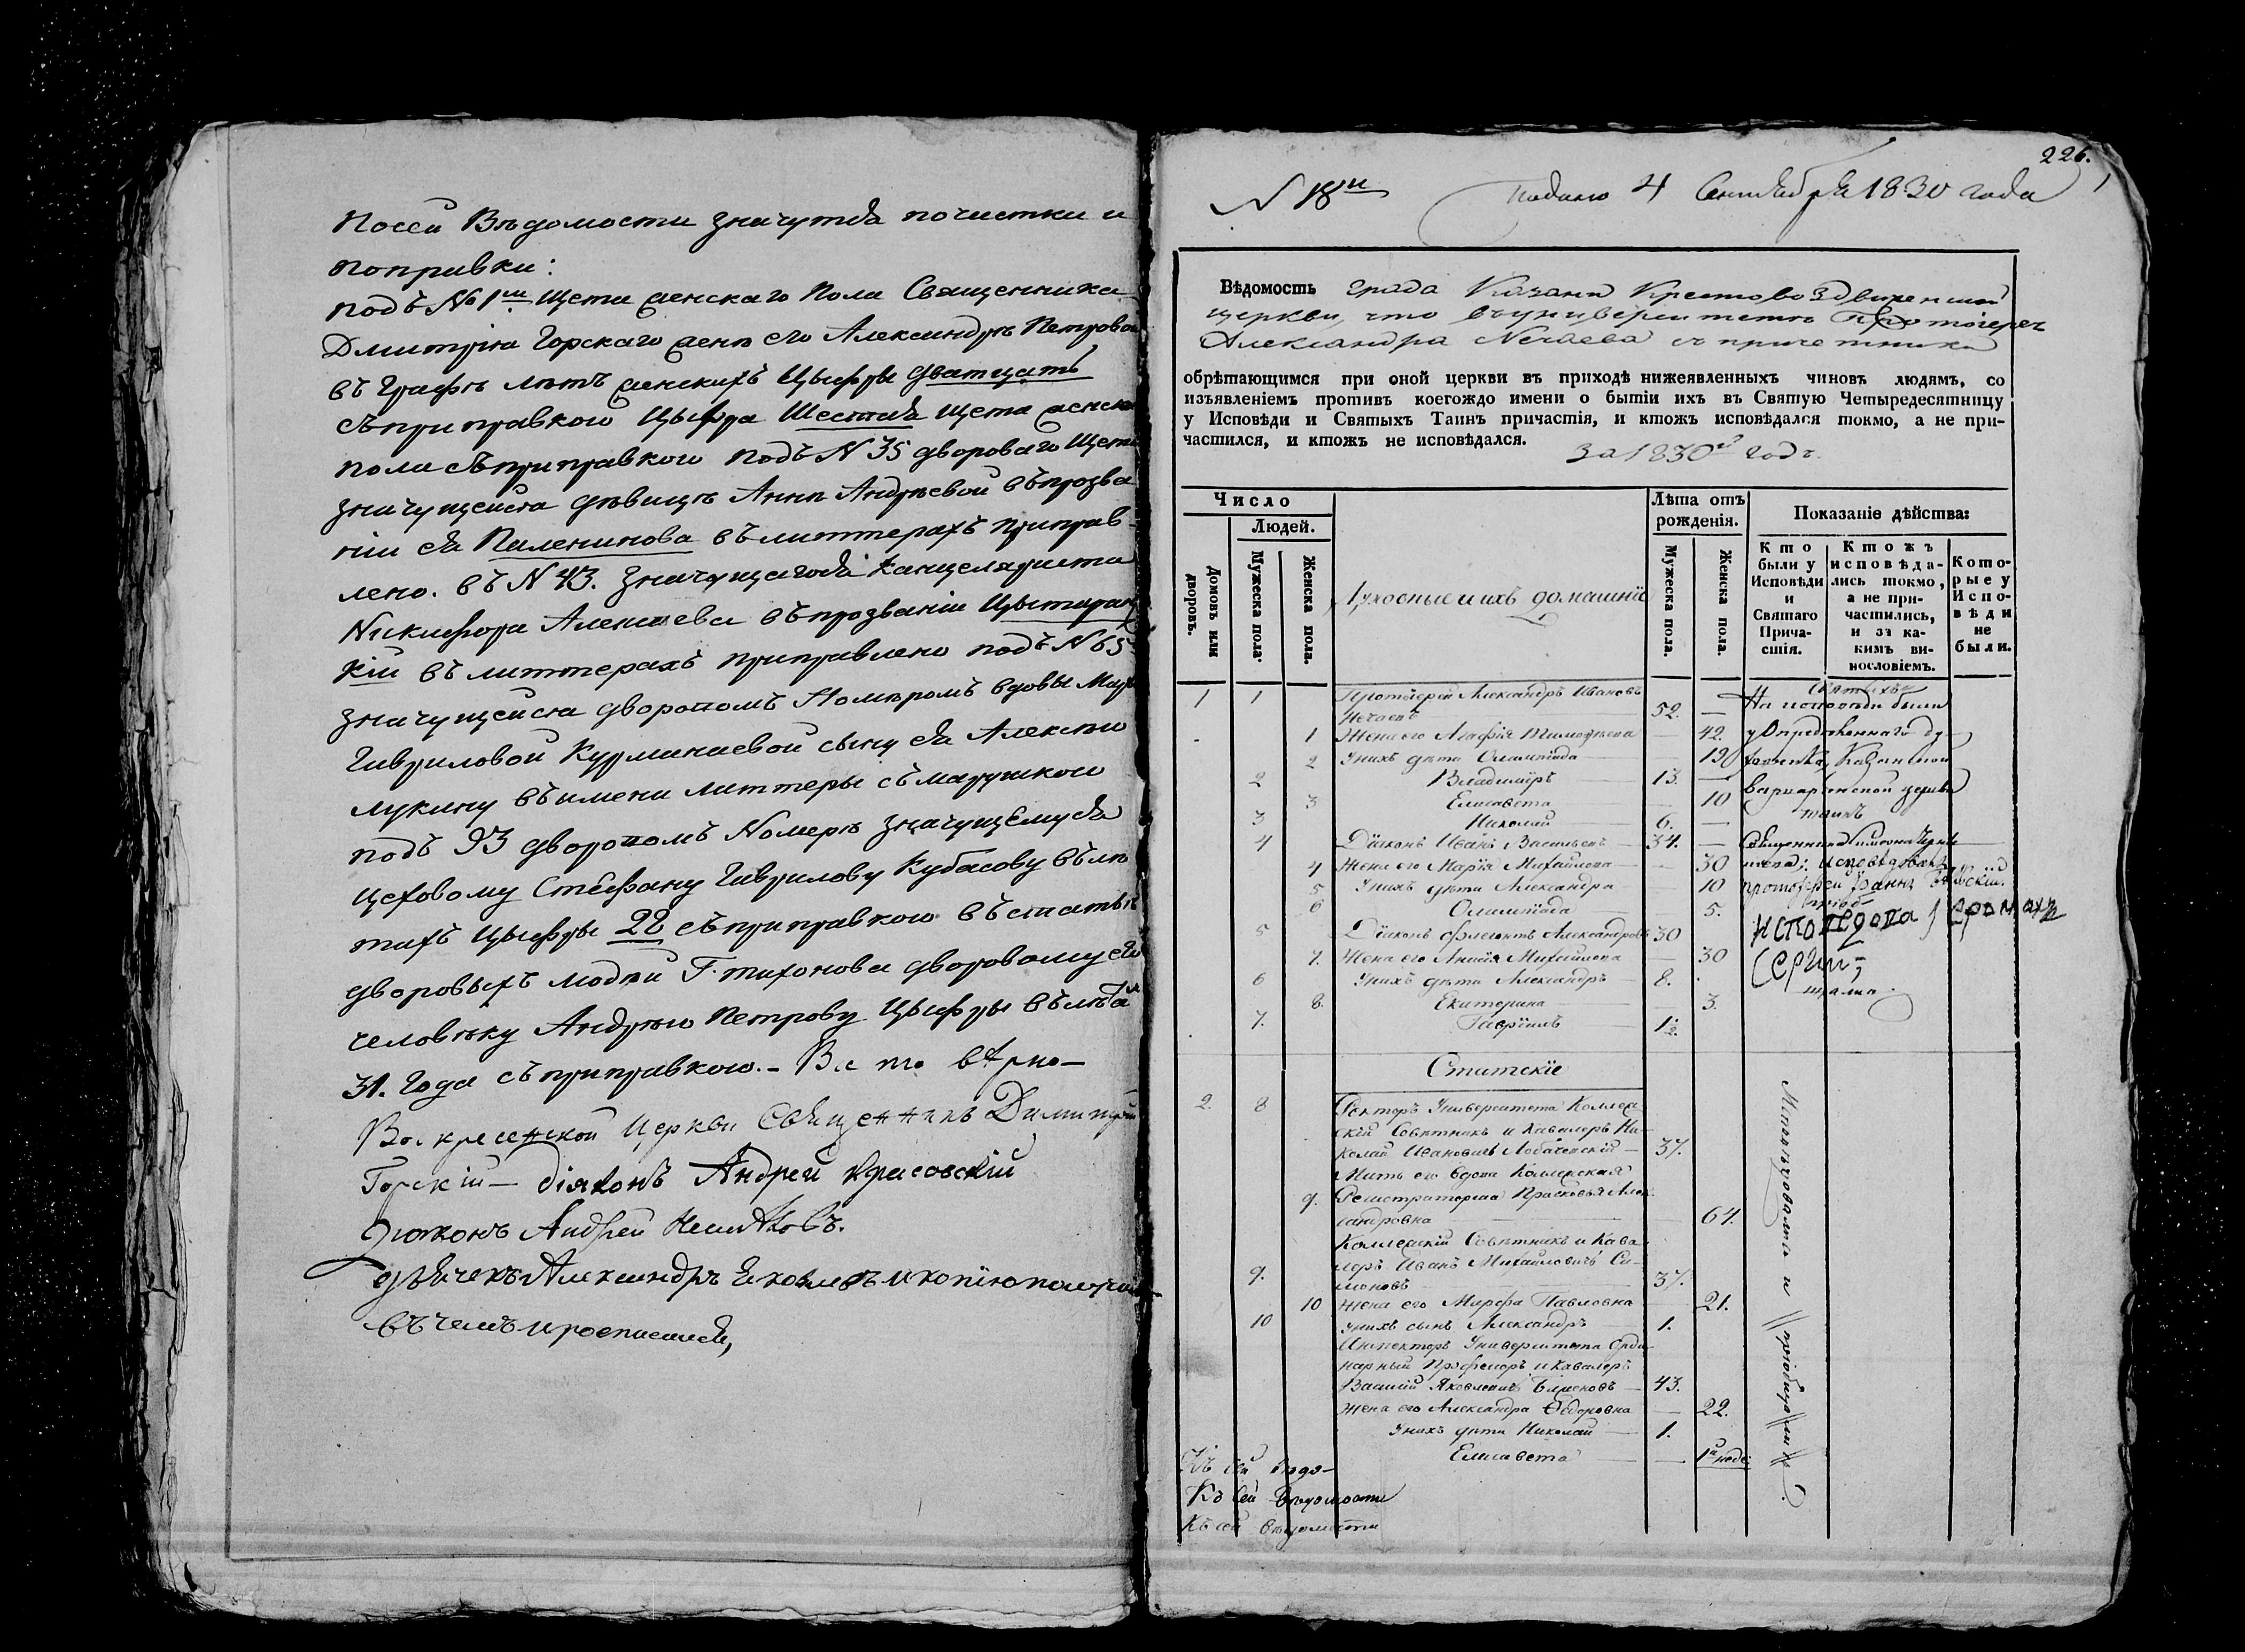 посей Вѣдомости значутся почистки и
поправки:
подъ № 1м щета женскаго Пола Священника
Дмитрія Горскаго жены его Александры Петровой
въ Графѣ лѣтъ женскихъ Цыфры дватцать
съприправкою Цыфра Шестая щета женска
пола съприправкою подъ N 35 двороваго щета
значущейся дѣвицѣ Аннѣ Андреевой въпрозва
ніи ея въ литтерахъ приправ-
лено. въ N 43. значущагося Канцеляриста
Никифора Алексеева въпрозваніи
кій въ литтерахъ приправлено подъ N 65
значущейся дворовомъ Номѣромъ вдовы
Гавриловой Курманаевой сыну ея Алексѣю
лукину въимени литтеры съмарушкою
подъ 93 дворовомъ Номерѣ значущемуся
цеховому Стефану Гаврилову Кубасову въ лѣ
тахъ Цыфры 22 съприправкою въ статьѣ
дворовыхъ людей Г. тихонова дворовому его
человѣку Андрею Петрову Цыфры въ лѣта
31. Года съприправкою. - Все то вѣрно -
Воскресенской Церкви Священникъ Димитрій
Горскій - діяконъ Андрей Красовскій
Андрей
дьячекъ Александръ Яковлевъ икопію
въчемъ иросписался,
226.
N 18й Подано 4 Сентября 1830 года
Вѣдомость града Казани Крестовоздвиженской
церкви, что въуниверситетѣ Протоіерея
Александра Нечаева съ причетники
обрѣтающимся при оной церкви въ приходѣ нижеявленныхъ чиновъ людямъ, со
изъявленіемъ противъ коегождо имени о бытіи ихъ въ Святую Четыредесятницу
у Исповѣди и Святыхъ Таинъ причастія, и ктожъ исповѣдался токмо, а не при-
частился, и ктожъ не исповѣдался.
За 1830й годъ.
Число
Людей.
Домовъ или дворовъ.
Мужеска пола.
Женска пола.
Духовные и ихъ домашніе
Лѣта отъ рожденія.
Мужеска пола.
Женска пола.
Показаніе дѣйства:
Кто были у Исповѣди и Святаго Причастія.
Ктожъ исповѣдались токмо, а не причастились, и за какимъ винословіемъ.
Которые у Исповѣди не были.
1 1 Протоіерей Александръ Ивановъ
Нечаевъ 52. — На исповѣди были
1 Жена его Агафія Тимофѣева — 42.
2 Унихъ дѣти Олимпіада 19
2 Владимиръ 13. —
3 Елисавета — 10 Варваринской церкви
3 Николай 6. —
4 Діаконъ Иванъ Васильевъ 34. —
4 Жена его Марія Михайлова — 30
5 Унихъ дѣти Александра 10
6 Олимпіада 5.
5 Діаконъ Флегонтъ Александровъ 30
7. Жена его Анисія Михайлова — 30
6 Унихъ дѣти Александръ 8.
8. Екатерина 3.
7. Гавріилъ 1/2.
Статскіе
2. 8 Ректоръ Университета Коллеж
скій Совѣтникъ и Кавалеръ Ни-
колай Ивановичъ Лобачевскій — 37.
Мать его вдова Коллежская
9. Регистраторша Прасковья Алек
сандровна 64.
Коллежскій Совѣтникъ и Кава
9. леръ Иванъ Михайловичъ Си-
моновъ 37.
10 Жена его Марфа Павловна 21.
10 унихъ сынъ Александръ 1.
Инспекторъ Университета Орди
нарный Профессоръ и Кавалеръ
Василій Яковлевичъ Булыгинъ 43.
Жена его Александра Ѳедоровна — 22.
Унихъ дѣти Николай 1.
Елисавета —
Исповѣдовались и пріобщались
Къ сей вѣдо-
Къ сей вѣдомости
Къ сей вѣдомости